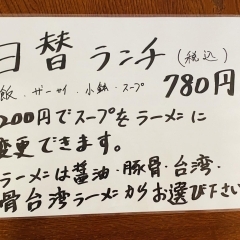 日替ランチ(税込)
飯.ザーサイ.小鉢.スープ 780円
200円でスープをラーメンに
変更できます。
ラーメンは醤油・豚骨・台湾・
骨台湾ラーメンからお選び下さい